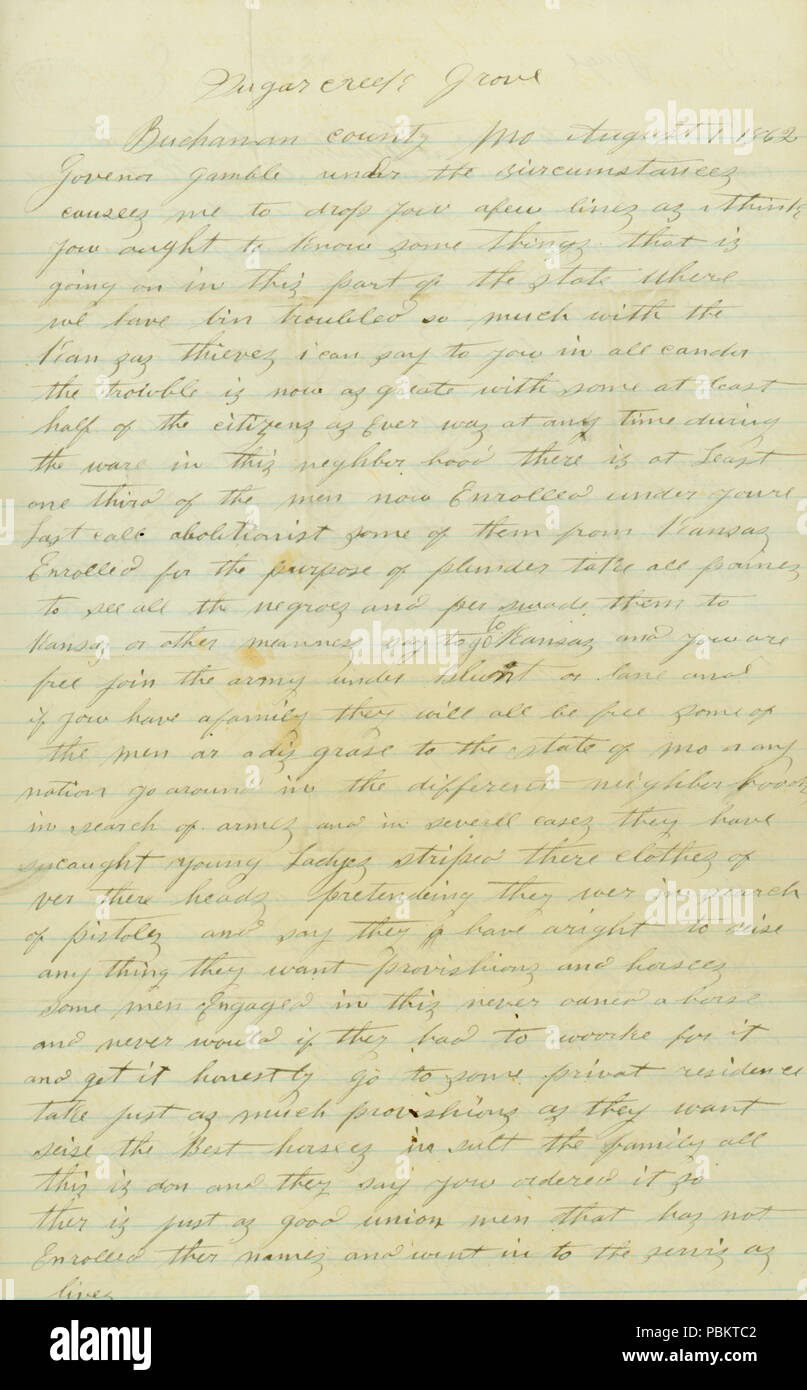 Sugar creek Grove
Buchanan county Mo August 1 1862
Govenor gamble under the circumstancez
causez me to drop yow afew linez az i think
yow ought to know some thingz that iz
going on in thiz part of the state Where
we have bin troubled so much with the
Kan zaz thievez i can say to yow in all candor
the trowble iz now az greate with some at least
half of the citizenz az Ever waz at any time during
the ware in thiz neghbor hood there iz at Least
one third of the men now Enrolled under youre
Last call abolitionist some of them from Kansaz
Enrolled for the purpose of plunder take all painez
to see all the negroez and per swade them to
Kansaz or other meannesz say to go to Kansaz and you are
free join the army under blunt or lane and
if yow have afamily they will all be free some of
the men ar adiz grase to the state of mo or any
nation go around in the different neighbor hoodz
in search of armz and in severel casez they have
caught young Ladyez striped there clothez of
ver there headz pretending they wer in search
of pistolz and say they have aright to seise
any thing they want provishionz and horsez
some men Engaged in thiz never owned a horse
and never would if they had to woorke for it
and get it honestly go to some privat residence
take just az much provishionz az they want
seise the Best horsez in sult the family all
thiz iz don and they say yow ordered it so
ther iz just az good union men that haz not
Enrolled ther namez and went in to the serviz az
livez
alamy
PBKTC2
www.alamy.com